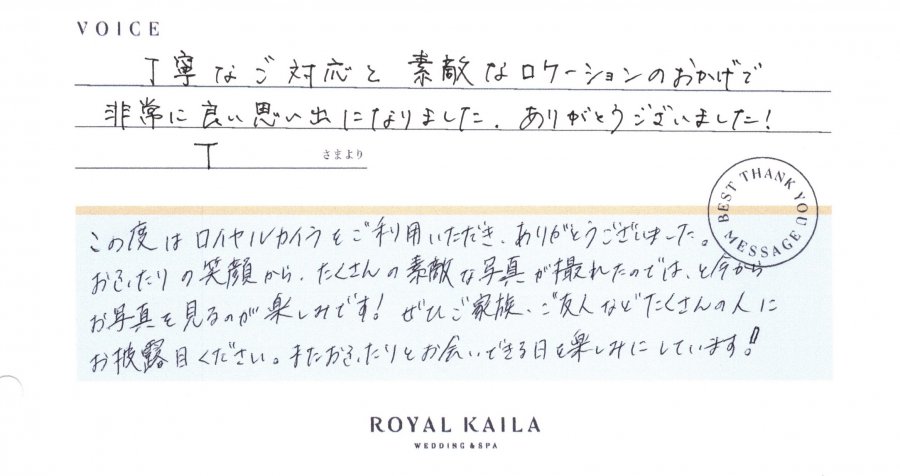 VOICE
丁寧なご対応と素敵なロケーションのおかげで
非常に良い思い出になりました。ありがとうございました!
T さまより
BEST THANK YOU MESSAGE
この度はロイヤルカイラをご利用いただき、ありがとうございました。
おふたりの笑顔から、たくさんの素敵な写真が撮れたのでは、と今から
お写真を見るのが楽しみです! ぜひご家族、ご友人などたくさんの人に
お披露目ください。またおふたりとお会いできる日を楽しみにしています!
ROYAL KAILA
WEDDING & SPA